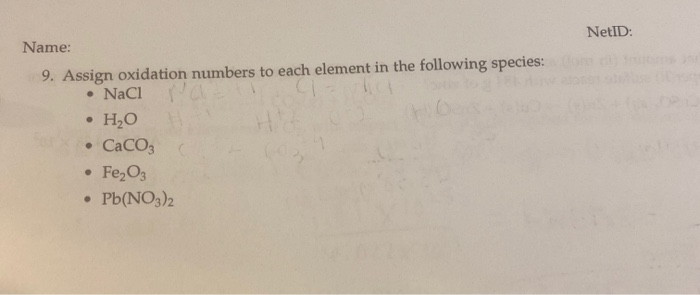 NetID:
Name:
9. Assign oxidation numbers to each element in the following species:
• NaCl
• H₂O
• CaCO₃
• Fe₂O₃
• Pb(NO₃)₂